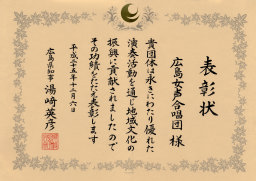 表彰状
広島女声合唱団 様
貴団体は永きにわたり優れた
演奏活動を通じ地域文化の
振興に貢献されましたので
その功績をたたえ表彰します
平成二十五年十二月六日
広島県知事 湯﨑英彦